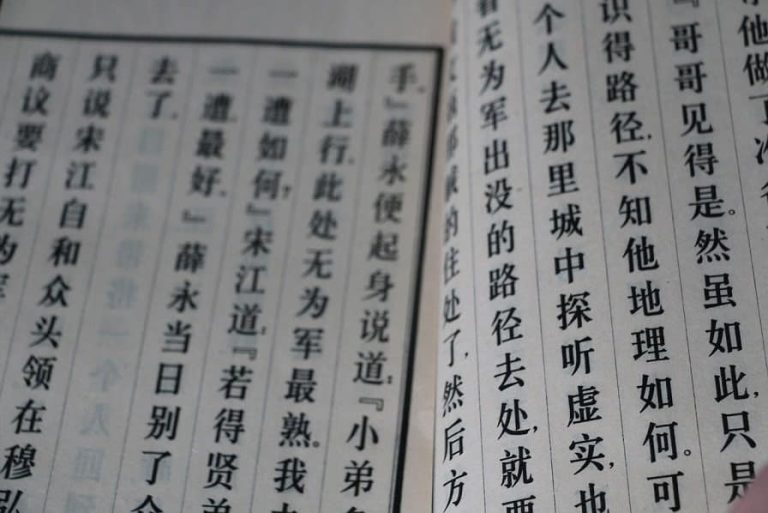 他做了
『哥哥见得是。然虽如此,只是
识得路径,不知他地理如何。可
个人去那里城中探听虚实,也
看无为军出没的路径去处,就要
的住处了,然后方
手。』薛永便起身说道:『小弟
湖上行,此处无为军最熟。我
一遭如何?』宋江道:『若得贤弟
一遭,最好。』薛永当日别了
去了。
只说宋江自和众头领在穆弘
商议要打无为军